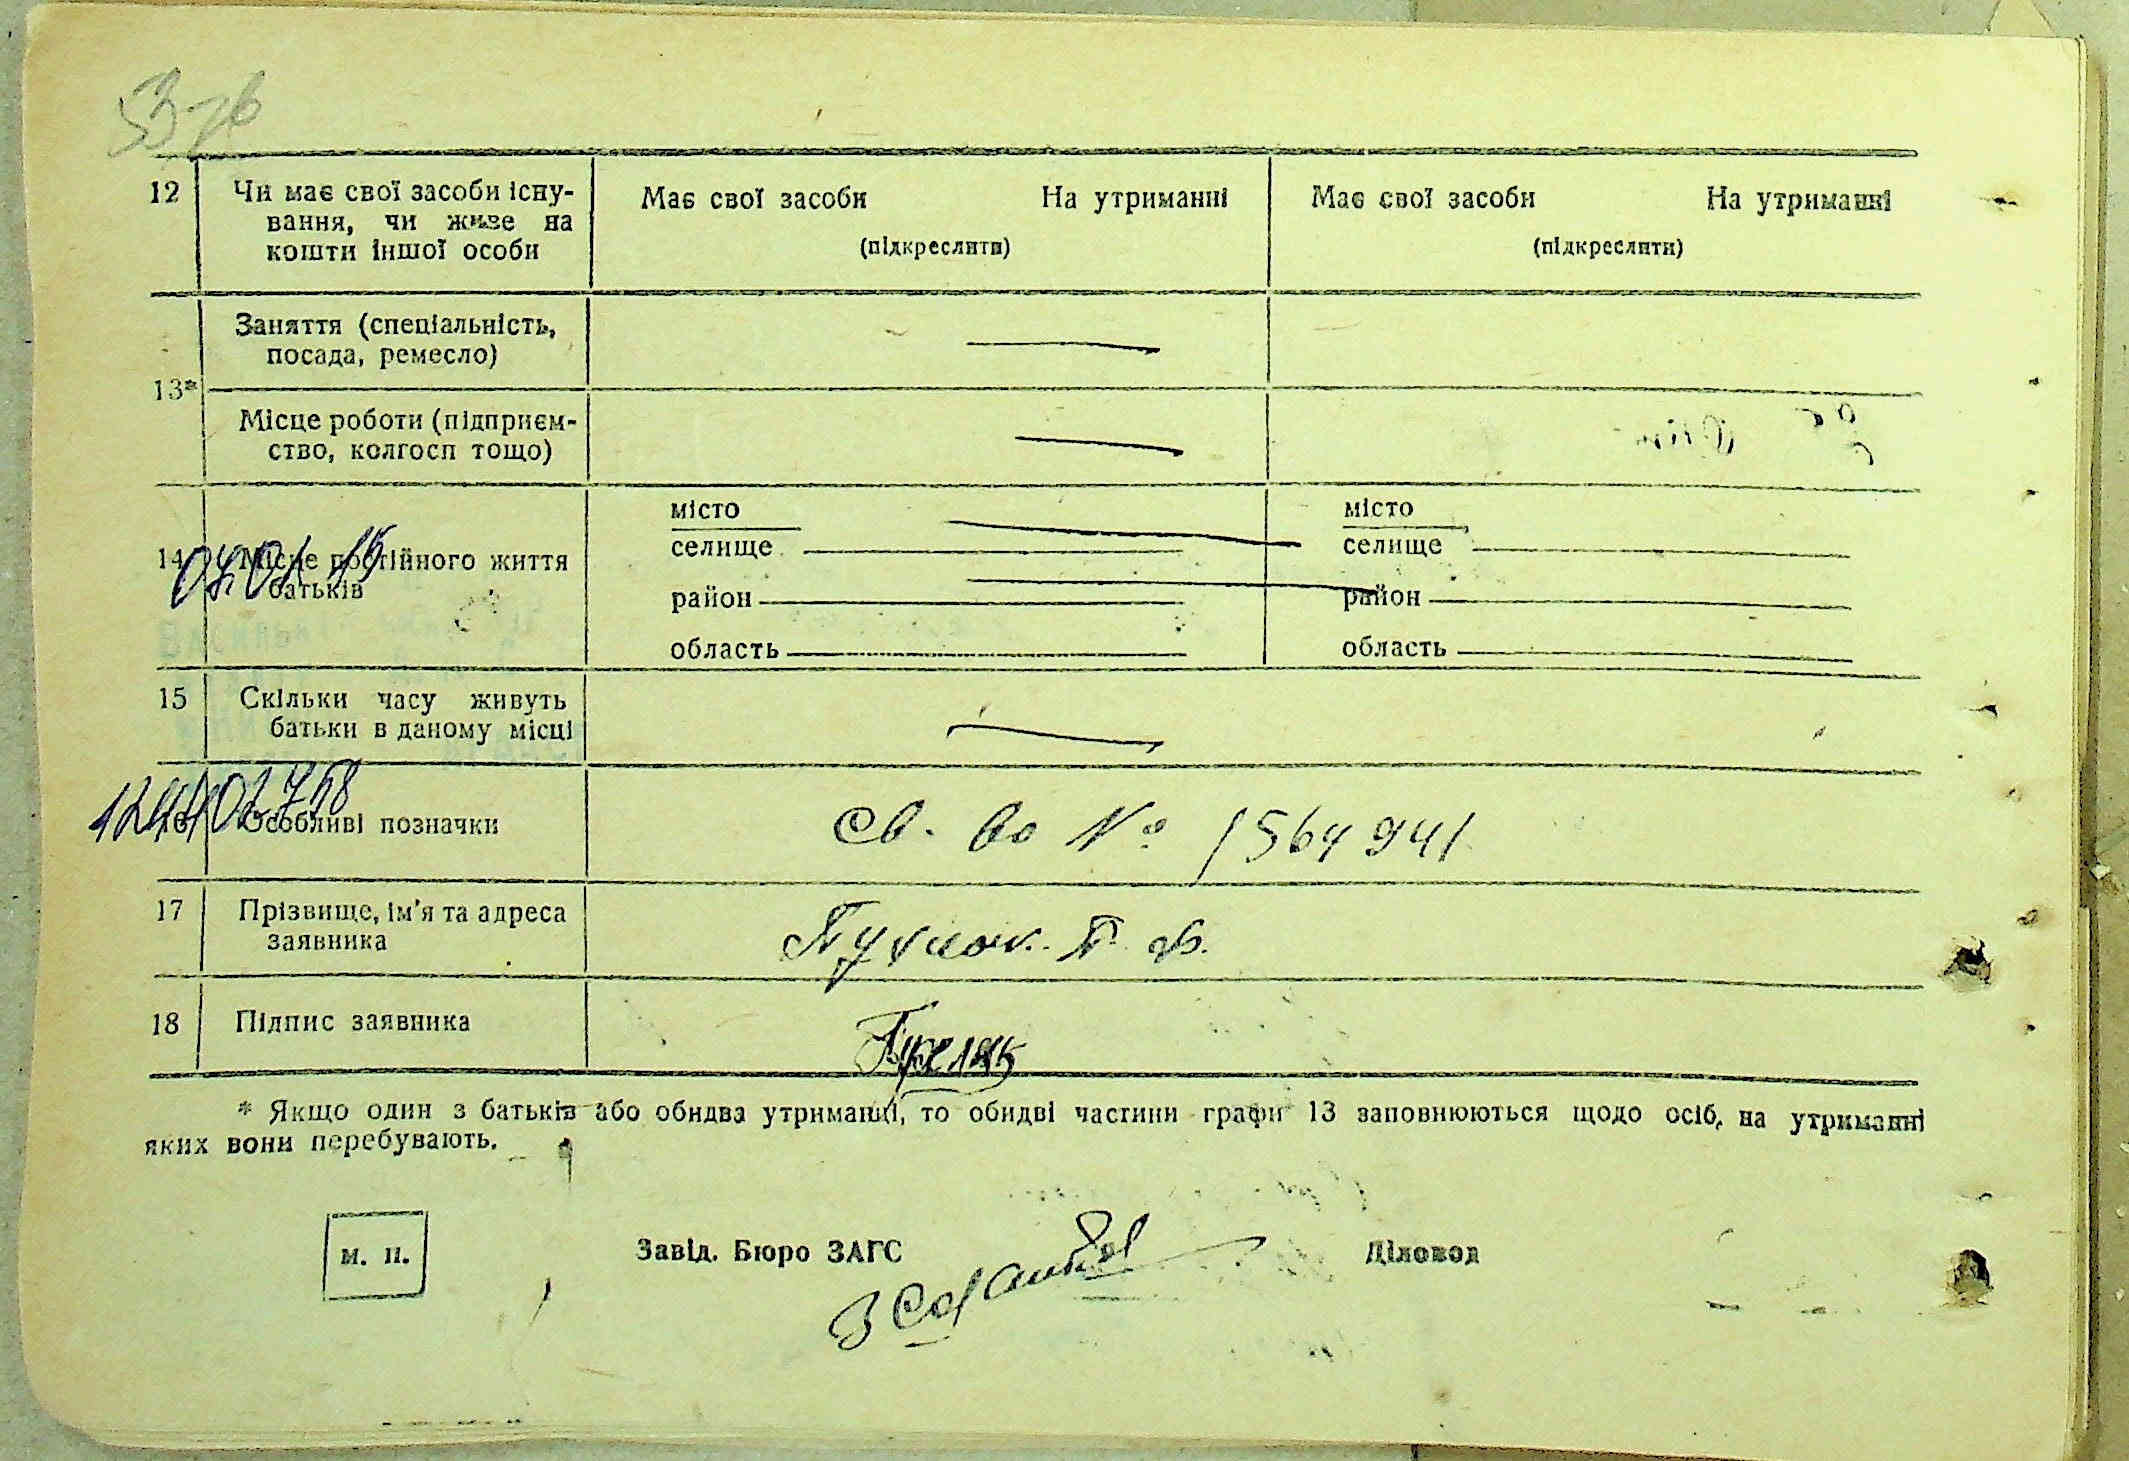 12 Чи має свої засоби існу- Має свої засоби На утриманні Має свої засоби На утриманні
вання, чи живе на (підкреслити) (підкреслити)
кошти іншої особи
Заняття (спеціальність,
посада, ремесло)
13*
Місце роботи (підприєм-
ство, колгосп тощо)
місто місто
14 Місце постійного життя селище селище
батьків район район
область область
15 Скільки часу живуть
батьки в даному місці
Особливі позначки Св. во № 1564941
17 Прізвище, ім'я та адреса
заявника
18 Підпис заявника
* Якщо один з батьків або обидва утриманці, то обидві частини графи 13 заповнюються щодо осіб, на утриманні
яких вони перебувають.
м. п. Завід. Бюро ЗАГС Діловод